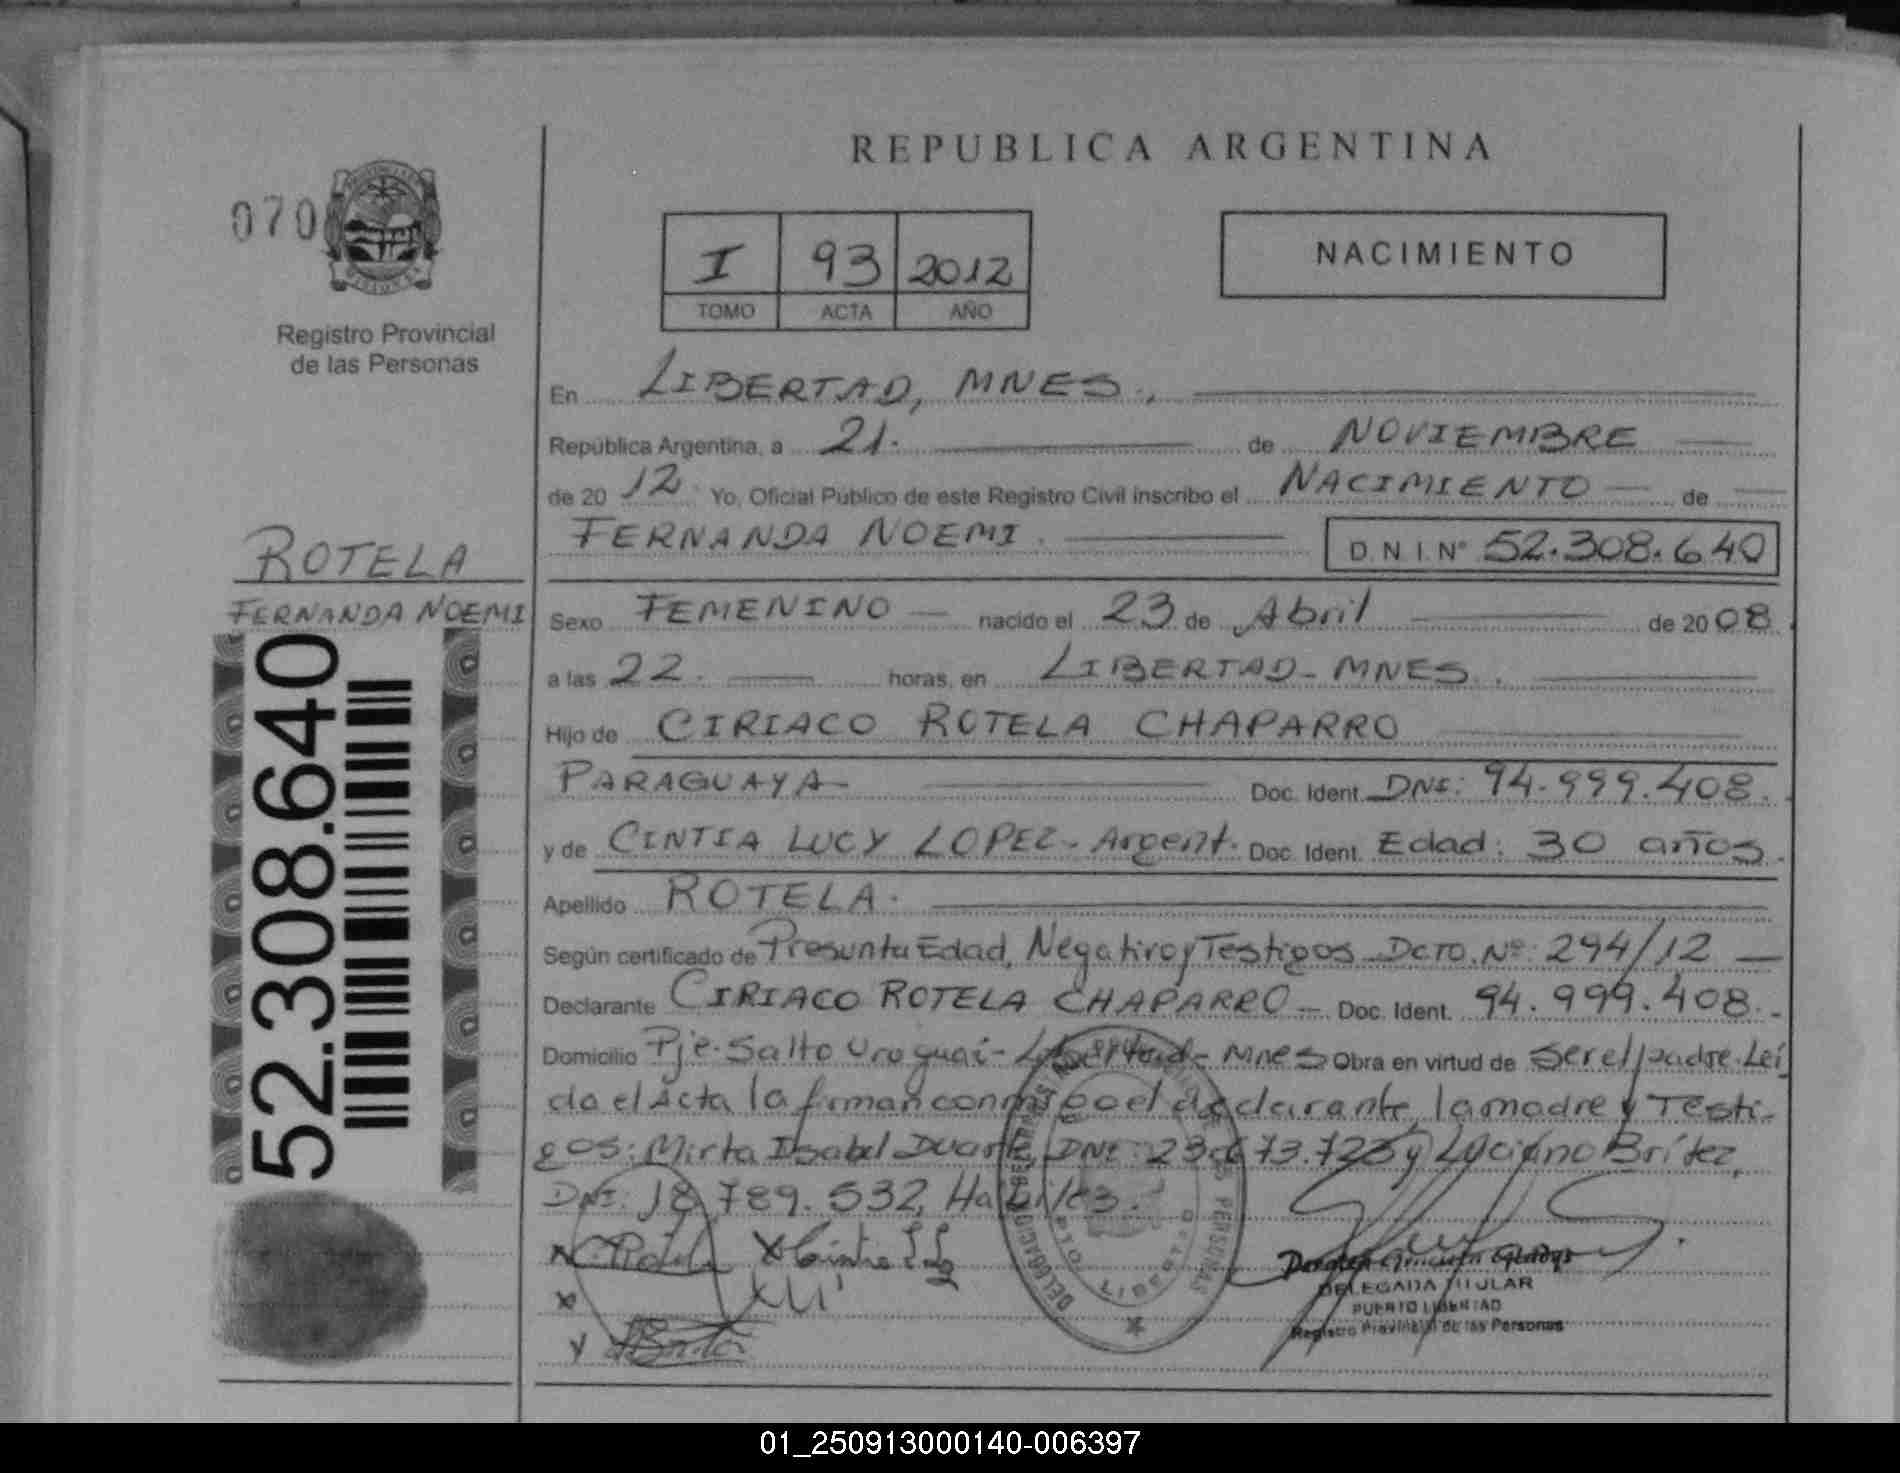 REPUBLICA ARGENTINA
070
Registro Provincial
de las Personas
I 93 2012
TOMO ACTA AÑO
NACIMIENTO
En LIBERTAD, MNES.,
República Argentina, a 21. de NOVIEMBRE
de 20 12. Yo, Oficial Público de este Registro Civil inscribo el NACIMIENTO de
FERNANDA NOEMI. D.N.I.Nº 52.308.640
ROTELA
FERNANDA NOEMI
52.308.640
Sexo FEMENINO nacido el 23 de Abril de 2008.
a las 22. horas, en LIBERTAD - MNES.
Hijo de CIRIACO ROTELA CHAPARRO
PARAGUAYA Doc. Ident. DNI: 94.999.408.
y de CINTIA LUCY LOPEZ - Argent. Doc. Ident. Edad: 30 años.
Apellido ROTELA.
Según certificado de Presunta Edad, Negativo y Testigos Dcto. Nº: 294/12
Declarante CIRIACO ROTELA CHAPARRO - Doc. Ident. 94.999.408.
Domicilio Pje. Salto Uruguai - Libertad - Mnes Obra en virtud de Ser el padre. Leí
da el Acta la firman conmigo el declarante, la madre y Testi-
gos: Mirta Isabel Duarte DNI: 23.673.723 y Luciano Brítez,
DNI: 18.789.532, Habiles.
DELEGADA TITULAR
PUERTO LIBERTAD
Registro Provincial de las Personas
01_250913000140-006397